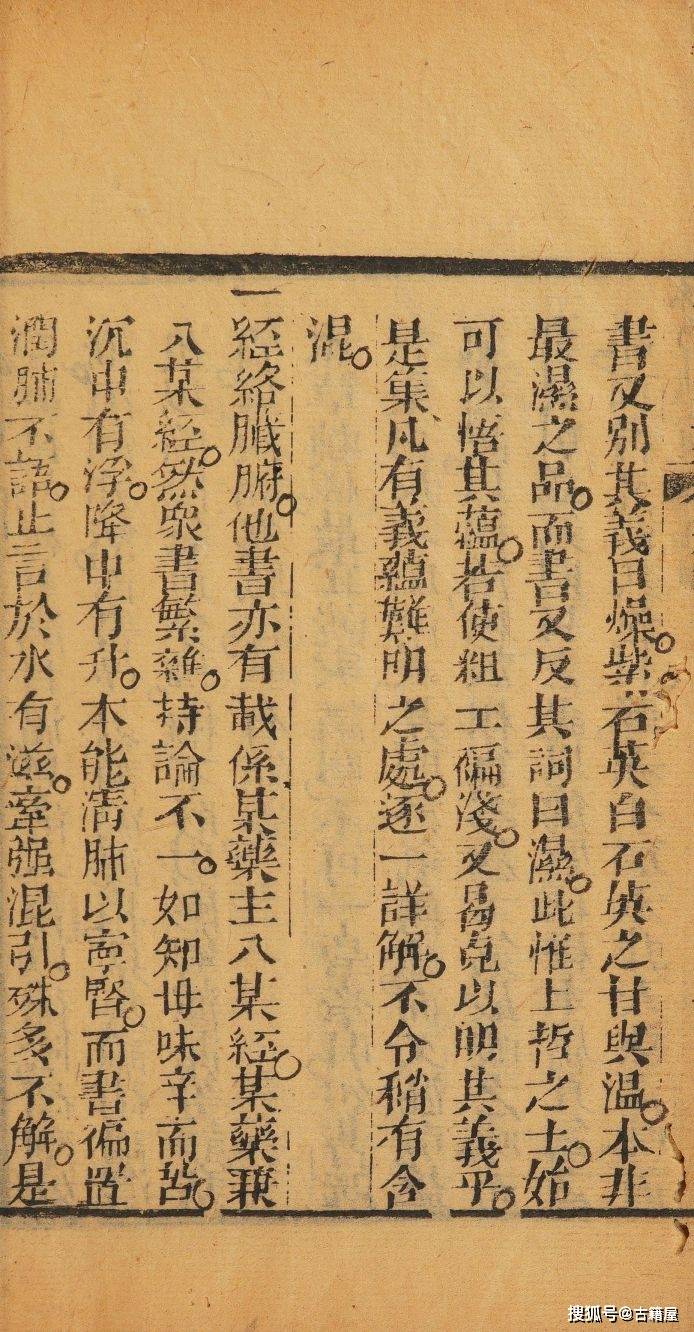 書又別其義曰燥紫石英白石英之甘與溫本非
最濕之品而書又反其詞曰濕此惟上哲之士始
可以悟其蘊若使粗工偏淺又曷克以明其義乎
是集凡有義蘊難明之處逐一詳解不令稍有含
混
一經絡臟腑他書亦有載係某藥主入某經某藥兼
入某經然衆書繁雜持論不一如知母味辛而苦
沉中有浮降中有升本能淸肺以寧腎而書徧置
潤肺不語止言於水有滋牽强混引殊多不解是
搜狐号@古籍屋